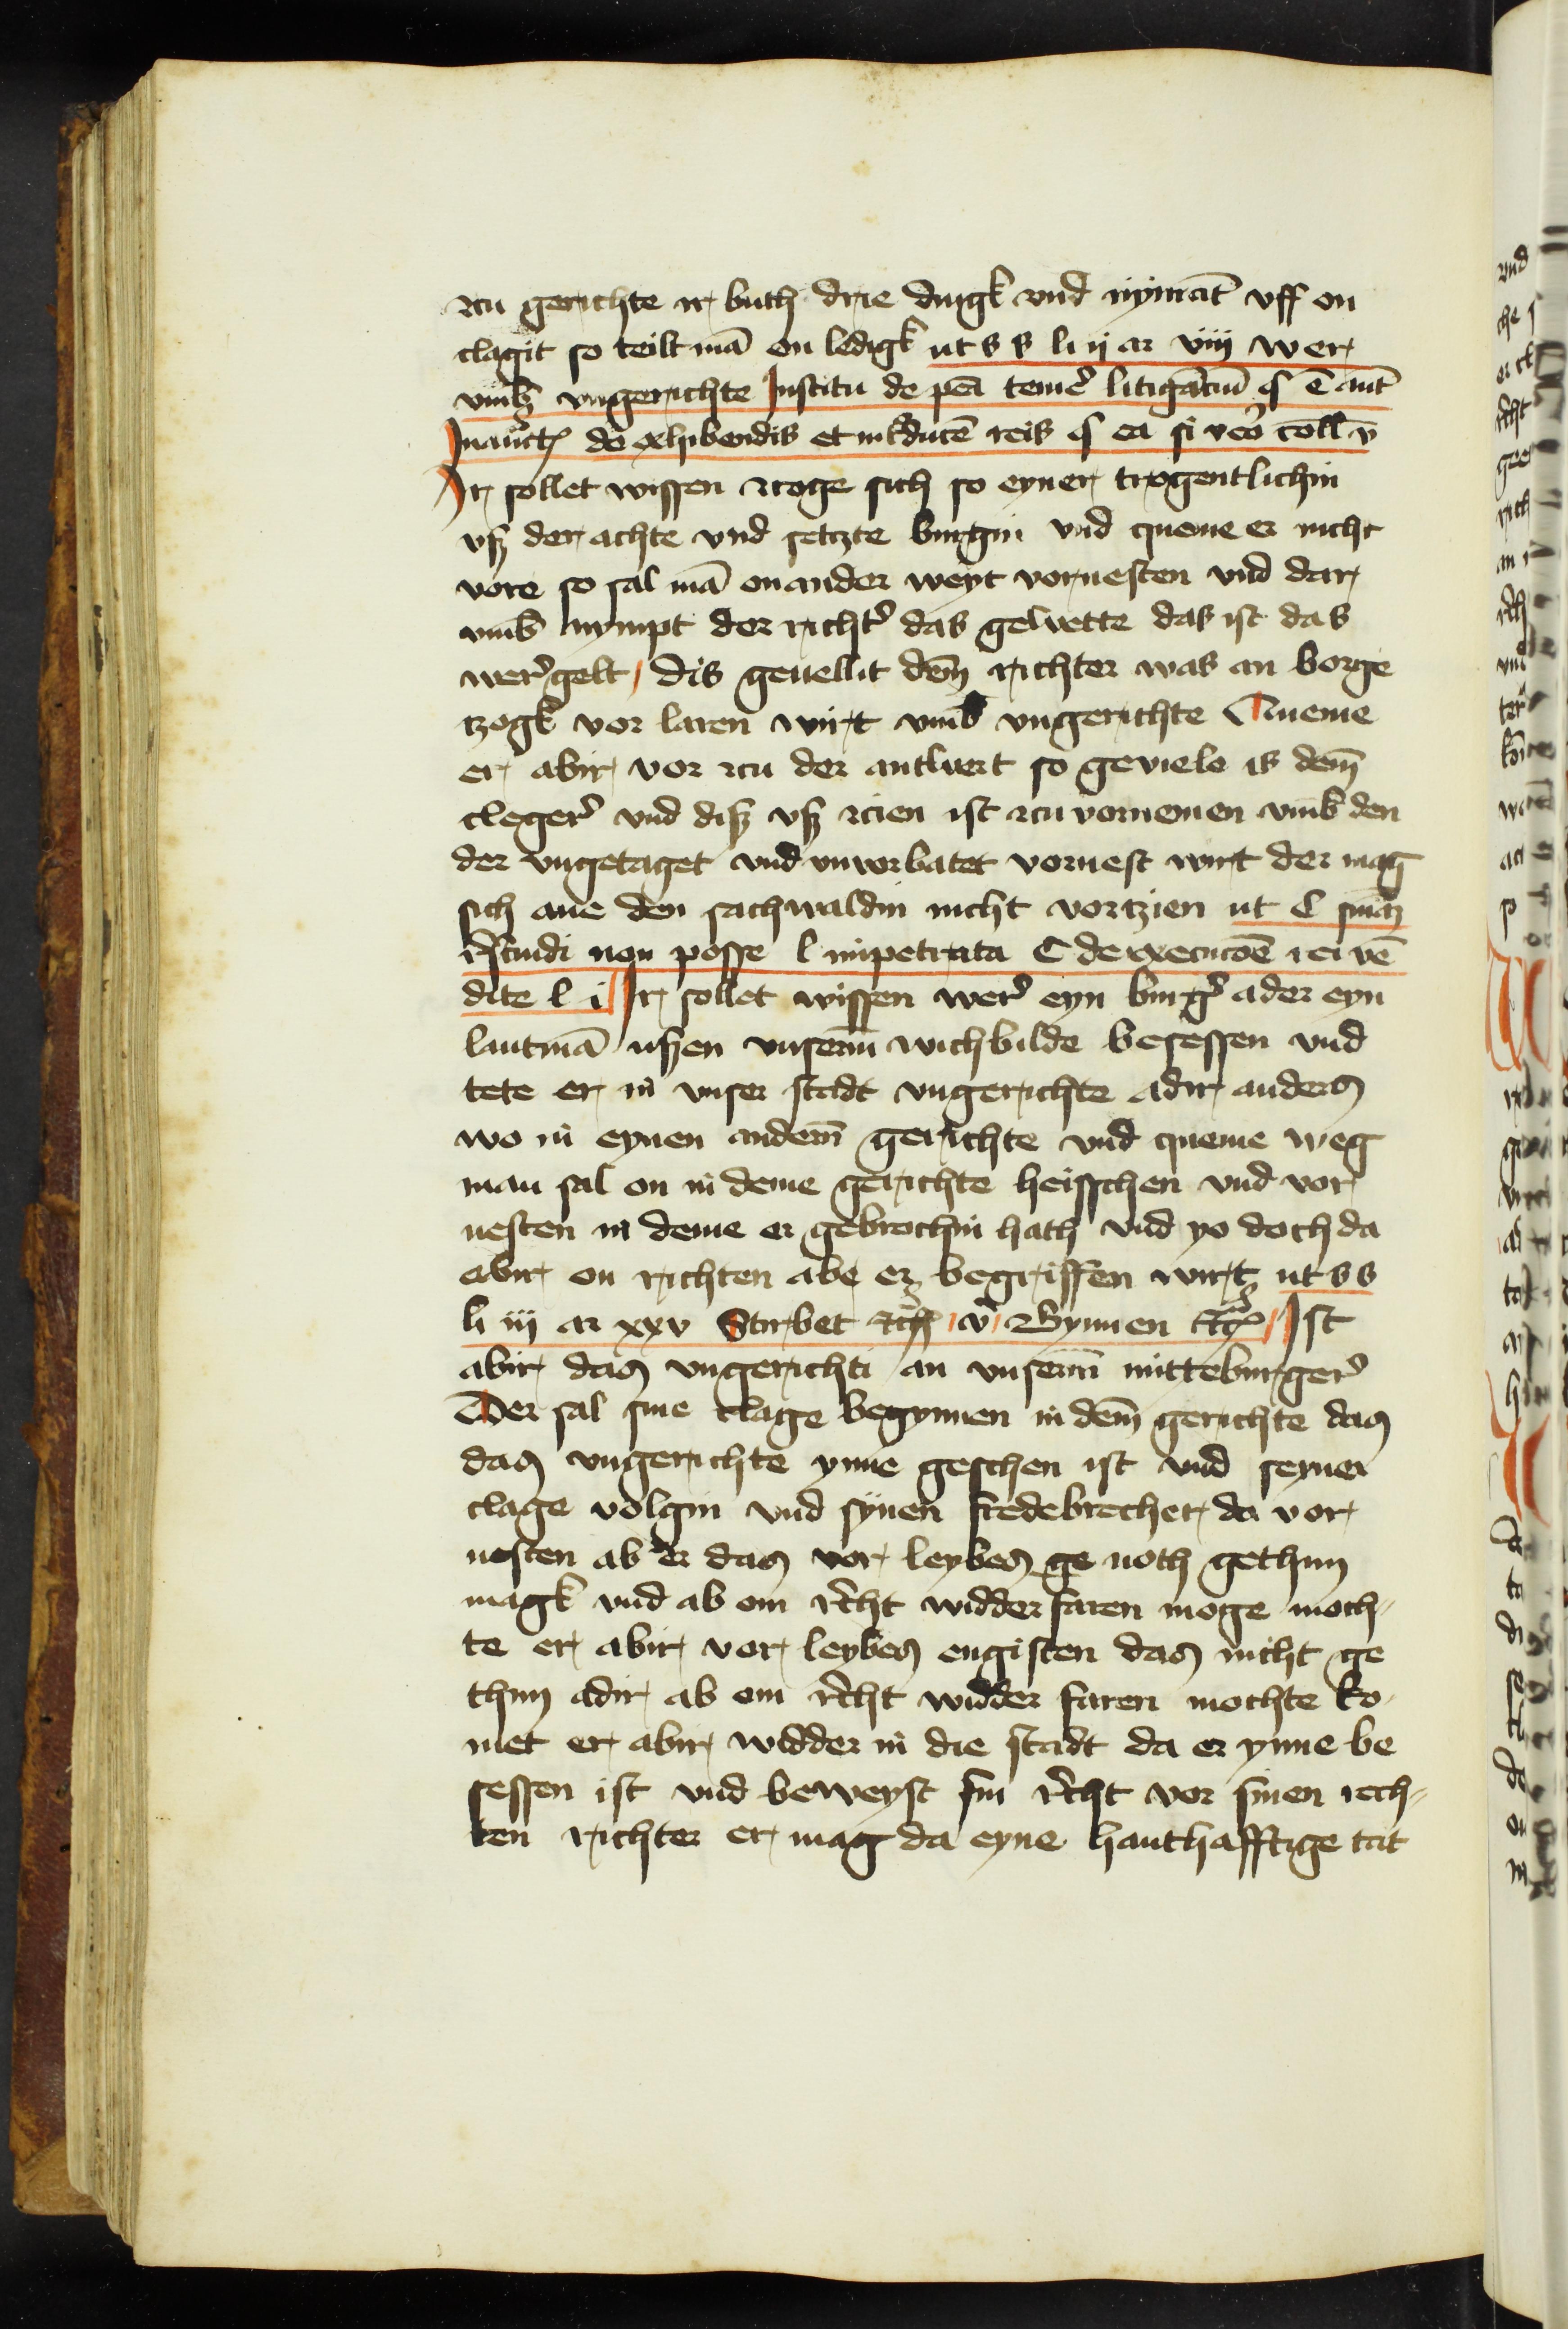 zcu gerichte ir buth drie dingk vnd nÿmāt vff on
clagit so teilt mā on ledigk ut s s li ij ar viij wer
vmb vngerichte Institu de pēa temer̉ litigāciū §
de exhibendis et reis § ea si
Ir sollet wissen zcoge sich so eyner trogentlichin
vß der achte vnd setczte burgin vnd queme er nicht
vore so sal mā on ander weyt voruesten vnd dar
vmb nympt der richt̉ das gewette das ist das
wer̉gelt / dis geuellit dem̄ richter was an borge
tzogk vor laren wirt vmb vngerichte Queme
er abir vor zcu der antwert so geviele is dem̄
cleger̉ vnd diß vß zcien ist zcu vornemen vmb den
der vngetaget vnd vnvorbatet voruest wirt der mag
sich ane den sachwaldin nicht vortzien ut C
non posse l impetrata C de execucōe rei
dite l i Ir sollet wissen wer̉ eyn burg̉ ader eyn
lantmā ußen vnserm̄ wichbilde besessen vnd
tete er in vnser stadt vngerichte adir anders
wo in eynen anderm̄ gerichte vnd queme weg
man sal on in deme gerichte heisschen vnd vor
uesten in deme er gebrochin hath vnd yo doch da
abir on richten abe er begriffen wirt ut s s
li iij ar xxv Stirbet v Bynnen Ist
abir das vngerichti an vnserm̄ mitteburger̉
Der sal sine clage begynnen in dem̄ gerichte das
das vngerichte ynne geschen ist vnd seyner
clage volgin vnd synen fredebrecher da vor
uesten ab er das vor leybes ge noth gethun
magk vnd ab om rc̉ht widder faren moge moch-
te er abir vor leybes engisten das nicht ge
thun adir ab om rc̉ht widder faren mochte ko
met er abir widder in die stadt da er ynne be
sessen ist vnd beweyst sin rc̉ht vor sinen rech-
ten richter er mag da eyne hanthafftige tat